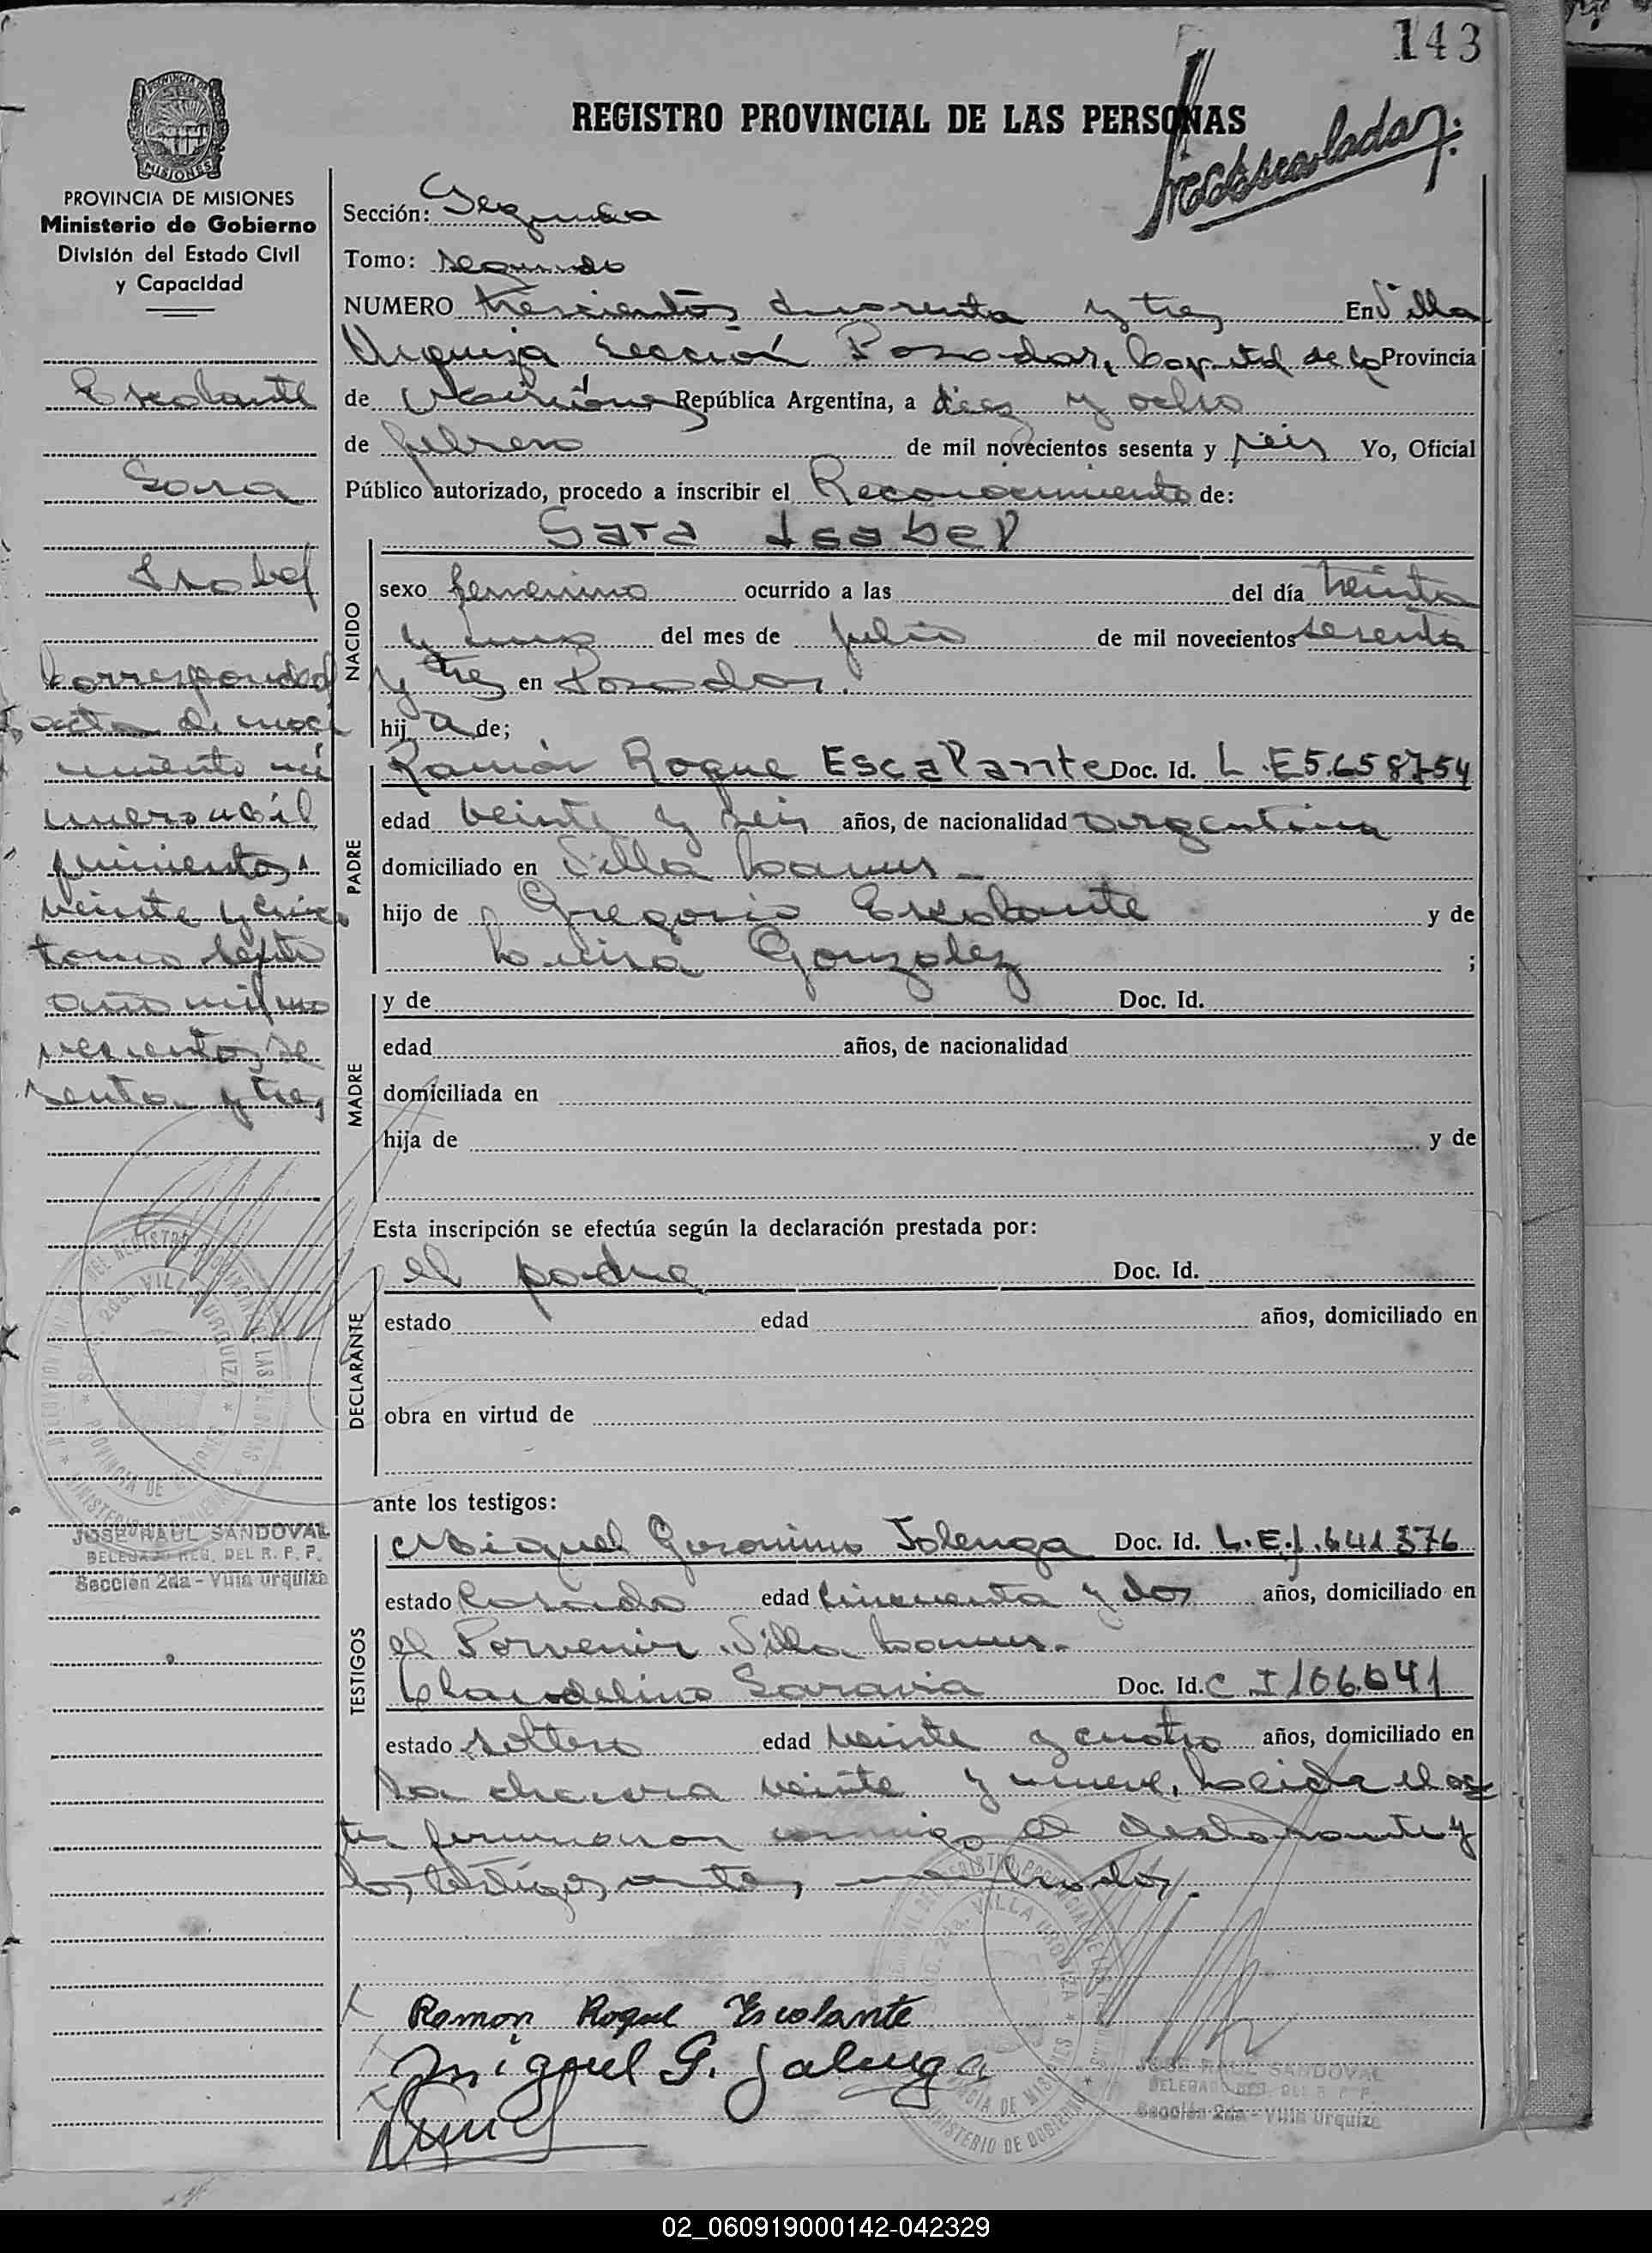 143
REGISTRO PROVINCIAL DE LAS PERSONAS
PROVINCIA DE MISIONES
Ministerio de Gobierno
División del Estado Civil
y Capacidad
Escalante
Sara
Isabel
Corresponde al
acta de naci
miento nú
mero mil
quinientos
veinte y cinco
tomo séptimo
año mil no
vecientos se
senta y tres
JOSE RAUL SANDOVAL
DELEGADO REG. DEL R. P. P.
Sección 2da - Villa Urquiza
Sección: Segunda
Tomo: segundo
NUMERO trescientos cuarenta y tres En Villa
Urquiza Sección Posadas, Capital de la Provincia
de Misiones República Argentina, a diez y ocho
de febrero de mil novecientos sesenta y seis Yo, Oficial
Público autorizado, procedo a inscribir el Reconocimiento de:
Sara Isabel
NACIDO
sexo femenino ocurrido a las del día treinta
y uno del mes de julio de mil novecientos sesenta
y tres en Posadas.
hija de;
PADRE
Ramón Roque Escalante Doc. Id. L.E 5.658754
edad veinte y seis años, de nacionalidad argentina
domiciliado en Villa Lanus
hijo de Gregorio Escalante y de
Luisa Gonzalez ;
MADRE
y de Doc. Id.
edad años, de nacionalidad
domiciliada en
hija de y de
Esta inscripción se efectúa según la declaración prestada por:
DECLARANTE
el padre Doc. Id.
estado edad años, domiciliado en
obra en virtud de
ante los testigos:
TESTIGOS
Miguel Geronimo Doc. Id. L.E.1.641376
estado Casado edad cincuenta y dos años, domiciliado en
el Porvenir Villa Lanus
Claudelino Saravia Doc. Id. C I 106.041
estado soltero edad veinte y cuatro años, domiciliado en
la chacra veinte y nueve. Leida el ac
ta firmaron conmigo el declarante y
los testigos antes nombrados.
Ramon Roque Escalante
Miguel G.
JOSE RAUL SANDOVAL
DELEGADO REG. DEL R. P. P.
Sección 2da - Villa Urquiza
02_060919000142-042329